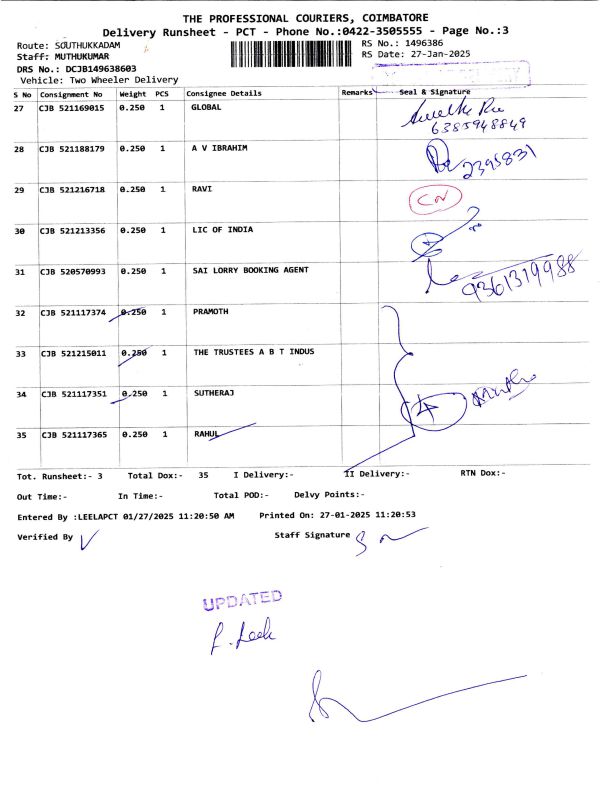 THE PROFESSIONAL COURIERS, COIMBATORE
Delivery Runsheet - PCT - Phone No.:0422-3505555 - Page No.:3
Route: SOUTHUKKADAM RS No.: 1496386
Staff: MUTHUKUMAR RS Date: 27-Jan-2025
DRS No.: DCJB149638603
Vehicle: Two Wheeler Delivery
S No Consignment No Weight PCS Consignee Details Remarks Seal & Signature
27 CJB 521169015 0.250 1 GLOBAL
6385948849
28 CJB 521188179 0.250 1 A V IBRAHIM
2395831
29 CJB 521216718 0.250 1 RAVI
30 CJB 521213356 0.250 1 LIC OF INDIA
31 CJB 520570993 0.250 1 SAI LORRY BOOKING AGENT
9361319988
32 CJB 521117374 0.250 1 PRAMOTH
33 CJB 521215011 0.250 1 THE TRUSTEES A B T INDUS
34 CJB 521117351 0.250 1 SUTHERAJ 4
35 CJB 521117365 0.250 1 RAHUL
Tot. Runsheet:- 3 Total Dox:- 35 I Delivery:- II Delivery:- RTN Dox:-
Out Time:- In Time:- Total POD:- Delvy Points:-
Entered By :LEELAPCT 01/27/2025 11:20:50 AM Printed On: 27-01-2025 11:20:53
Verified By Staff Signature
UPDATED